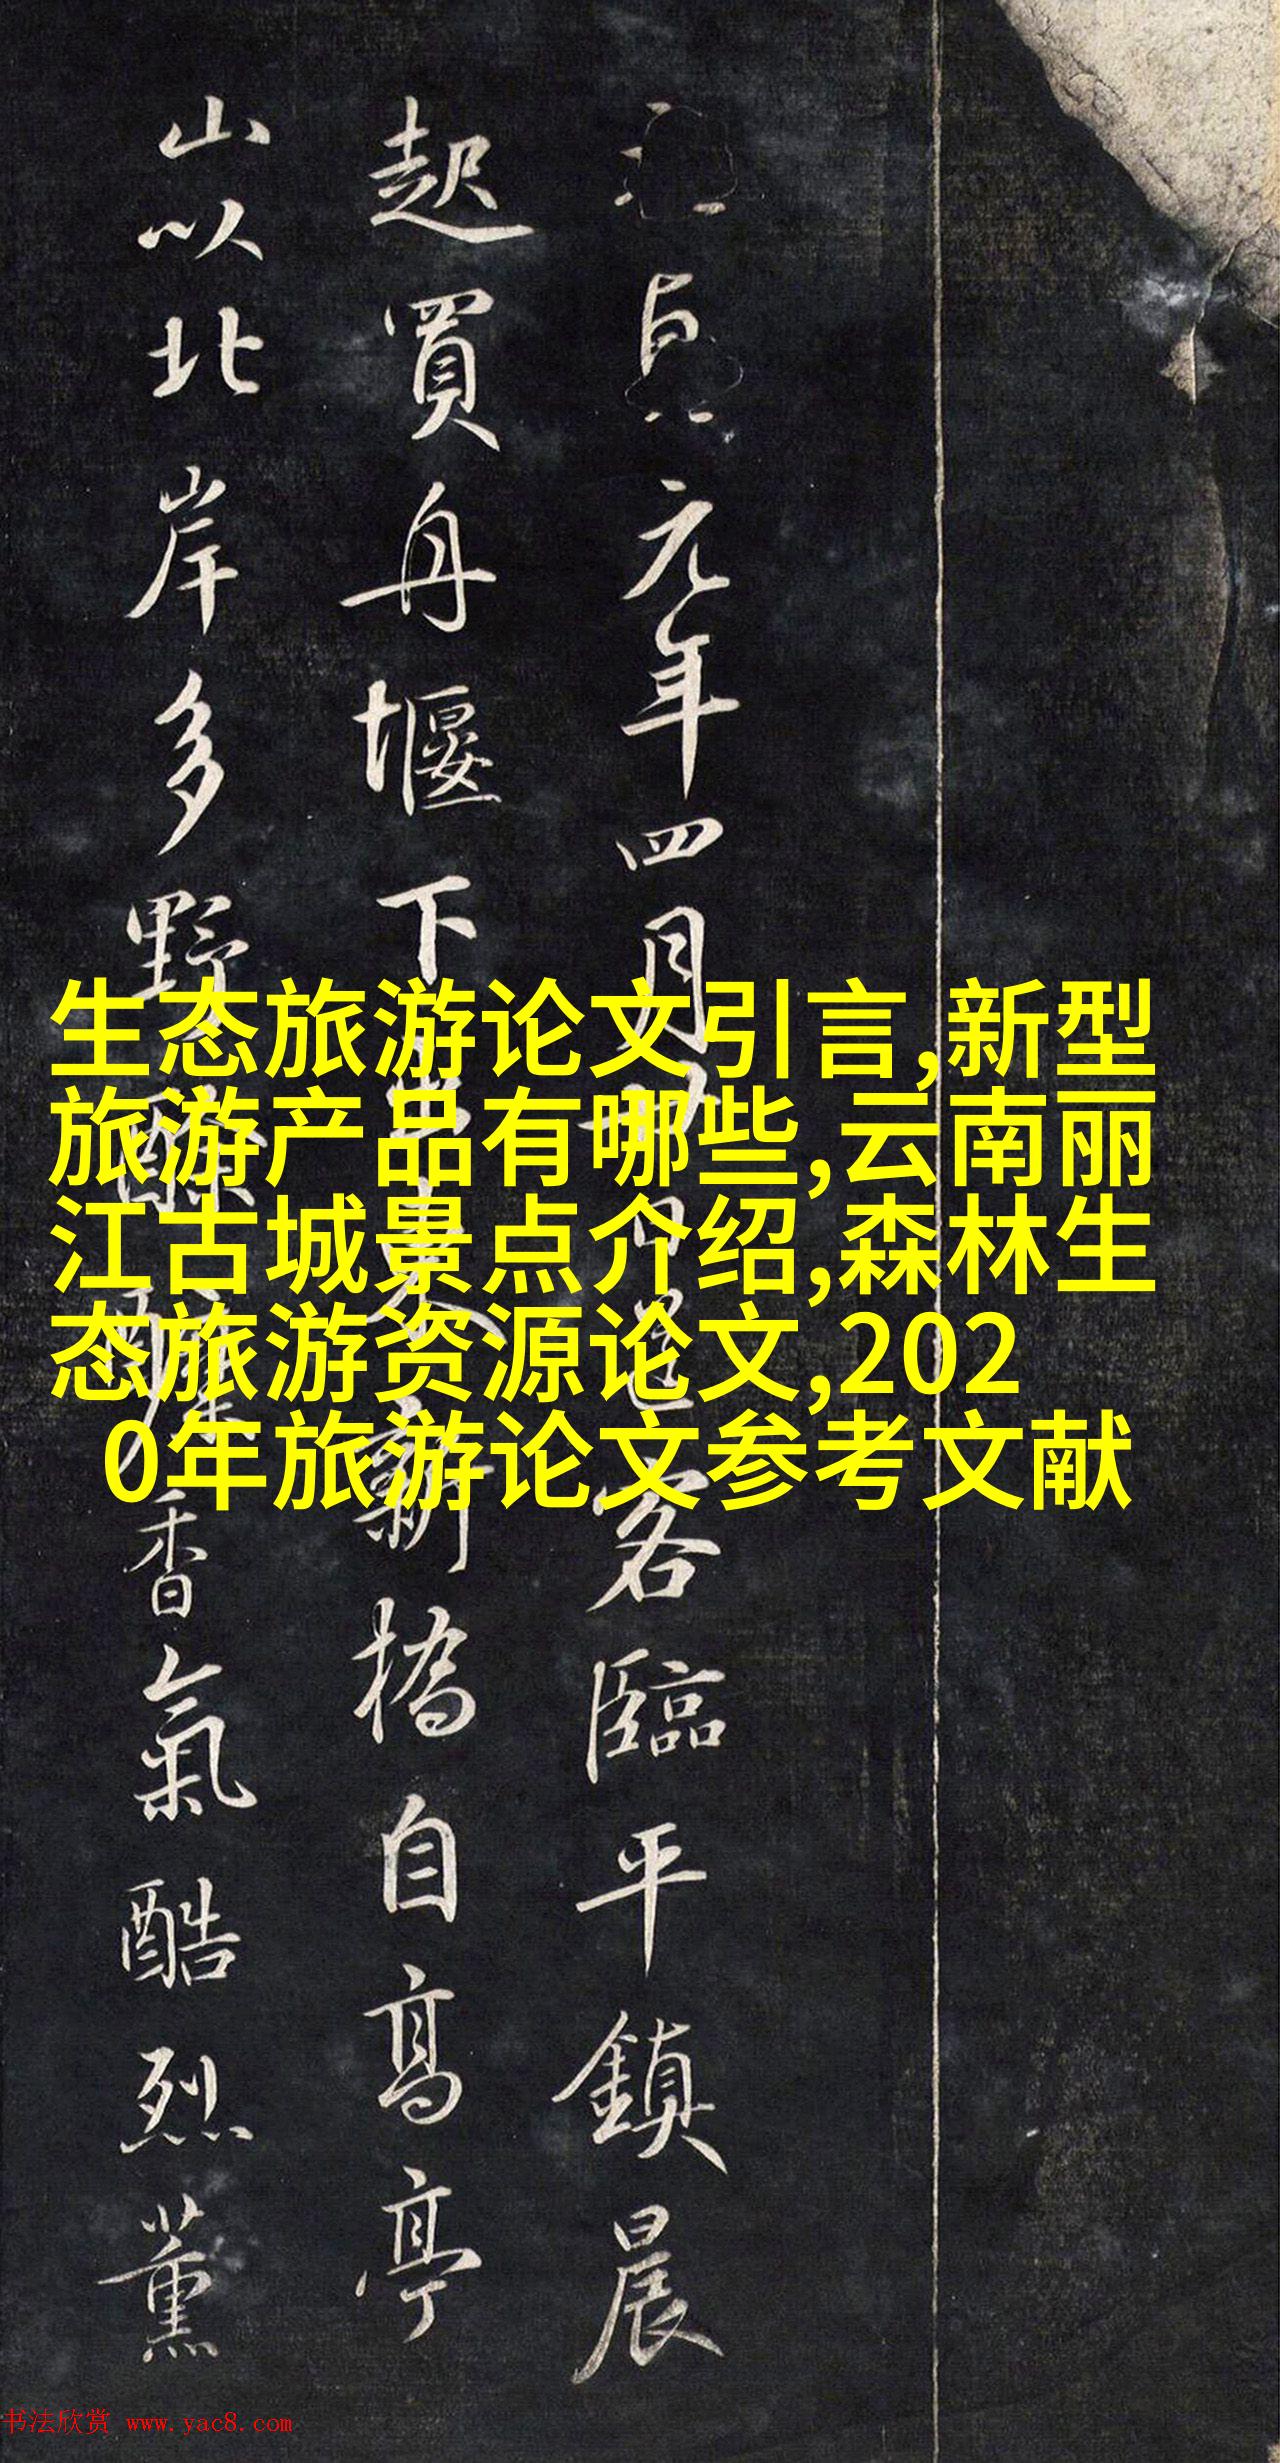 元年四月客臨平鎮晨
起買舟堰下新橋自高亭
山以北岸多野香氣酷烈薰
生态旅游论文引言,新型
旅游产品有哪些,云南丽
江古城景点介绍,森林生
态旅游资源论文,202
0年旅游论文参考文献
书法欣赏 www.yac8.com